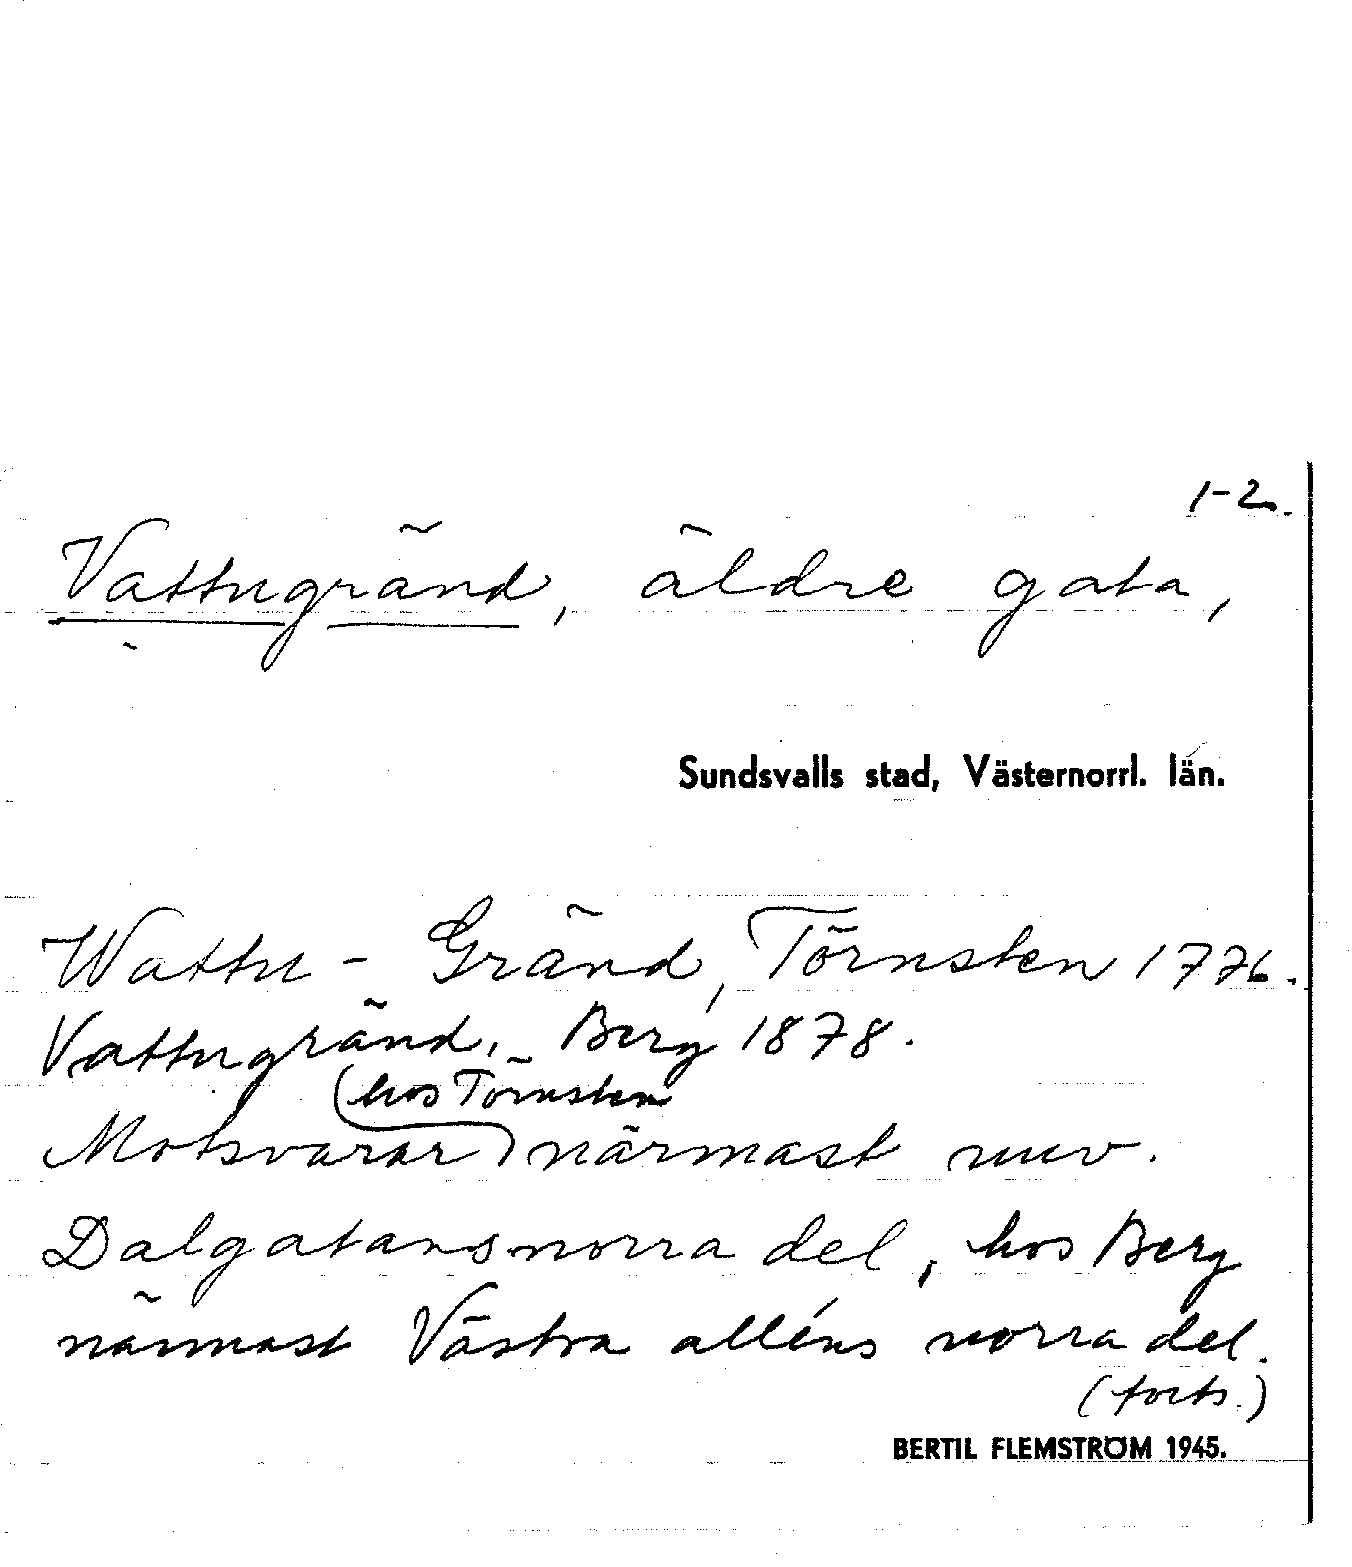 1-2.
Vattugränd, äldre gata,
Sundsvalls stad, Västernorrl. län.
Wattu-Gränd, Törnsten 1776.
Vattugränd, Berg 1878.
(hos Törnsten)
Motsvarar närmast nuv.
Dalgatans norra del, hos Berg
närmast Västra alléns norra del.
(forts.)
BERTIL FLEMSTRÖM 1945.